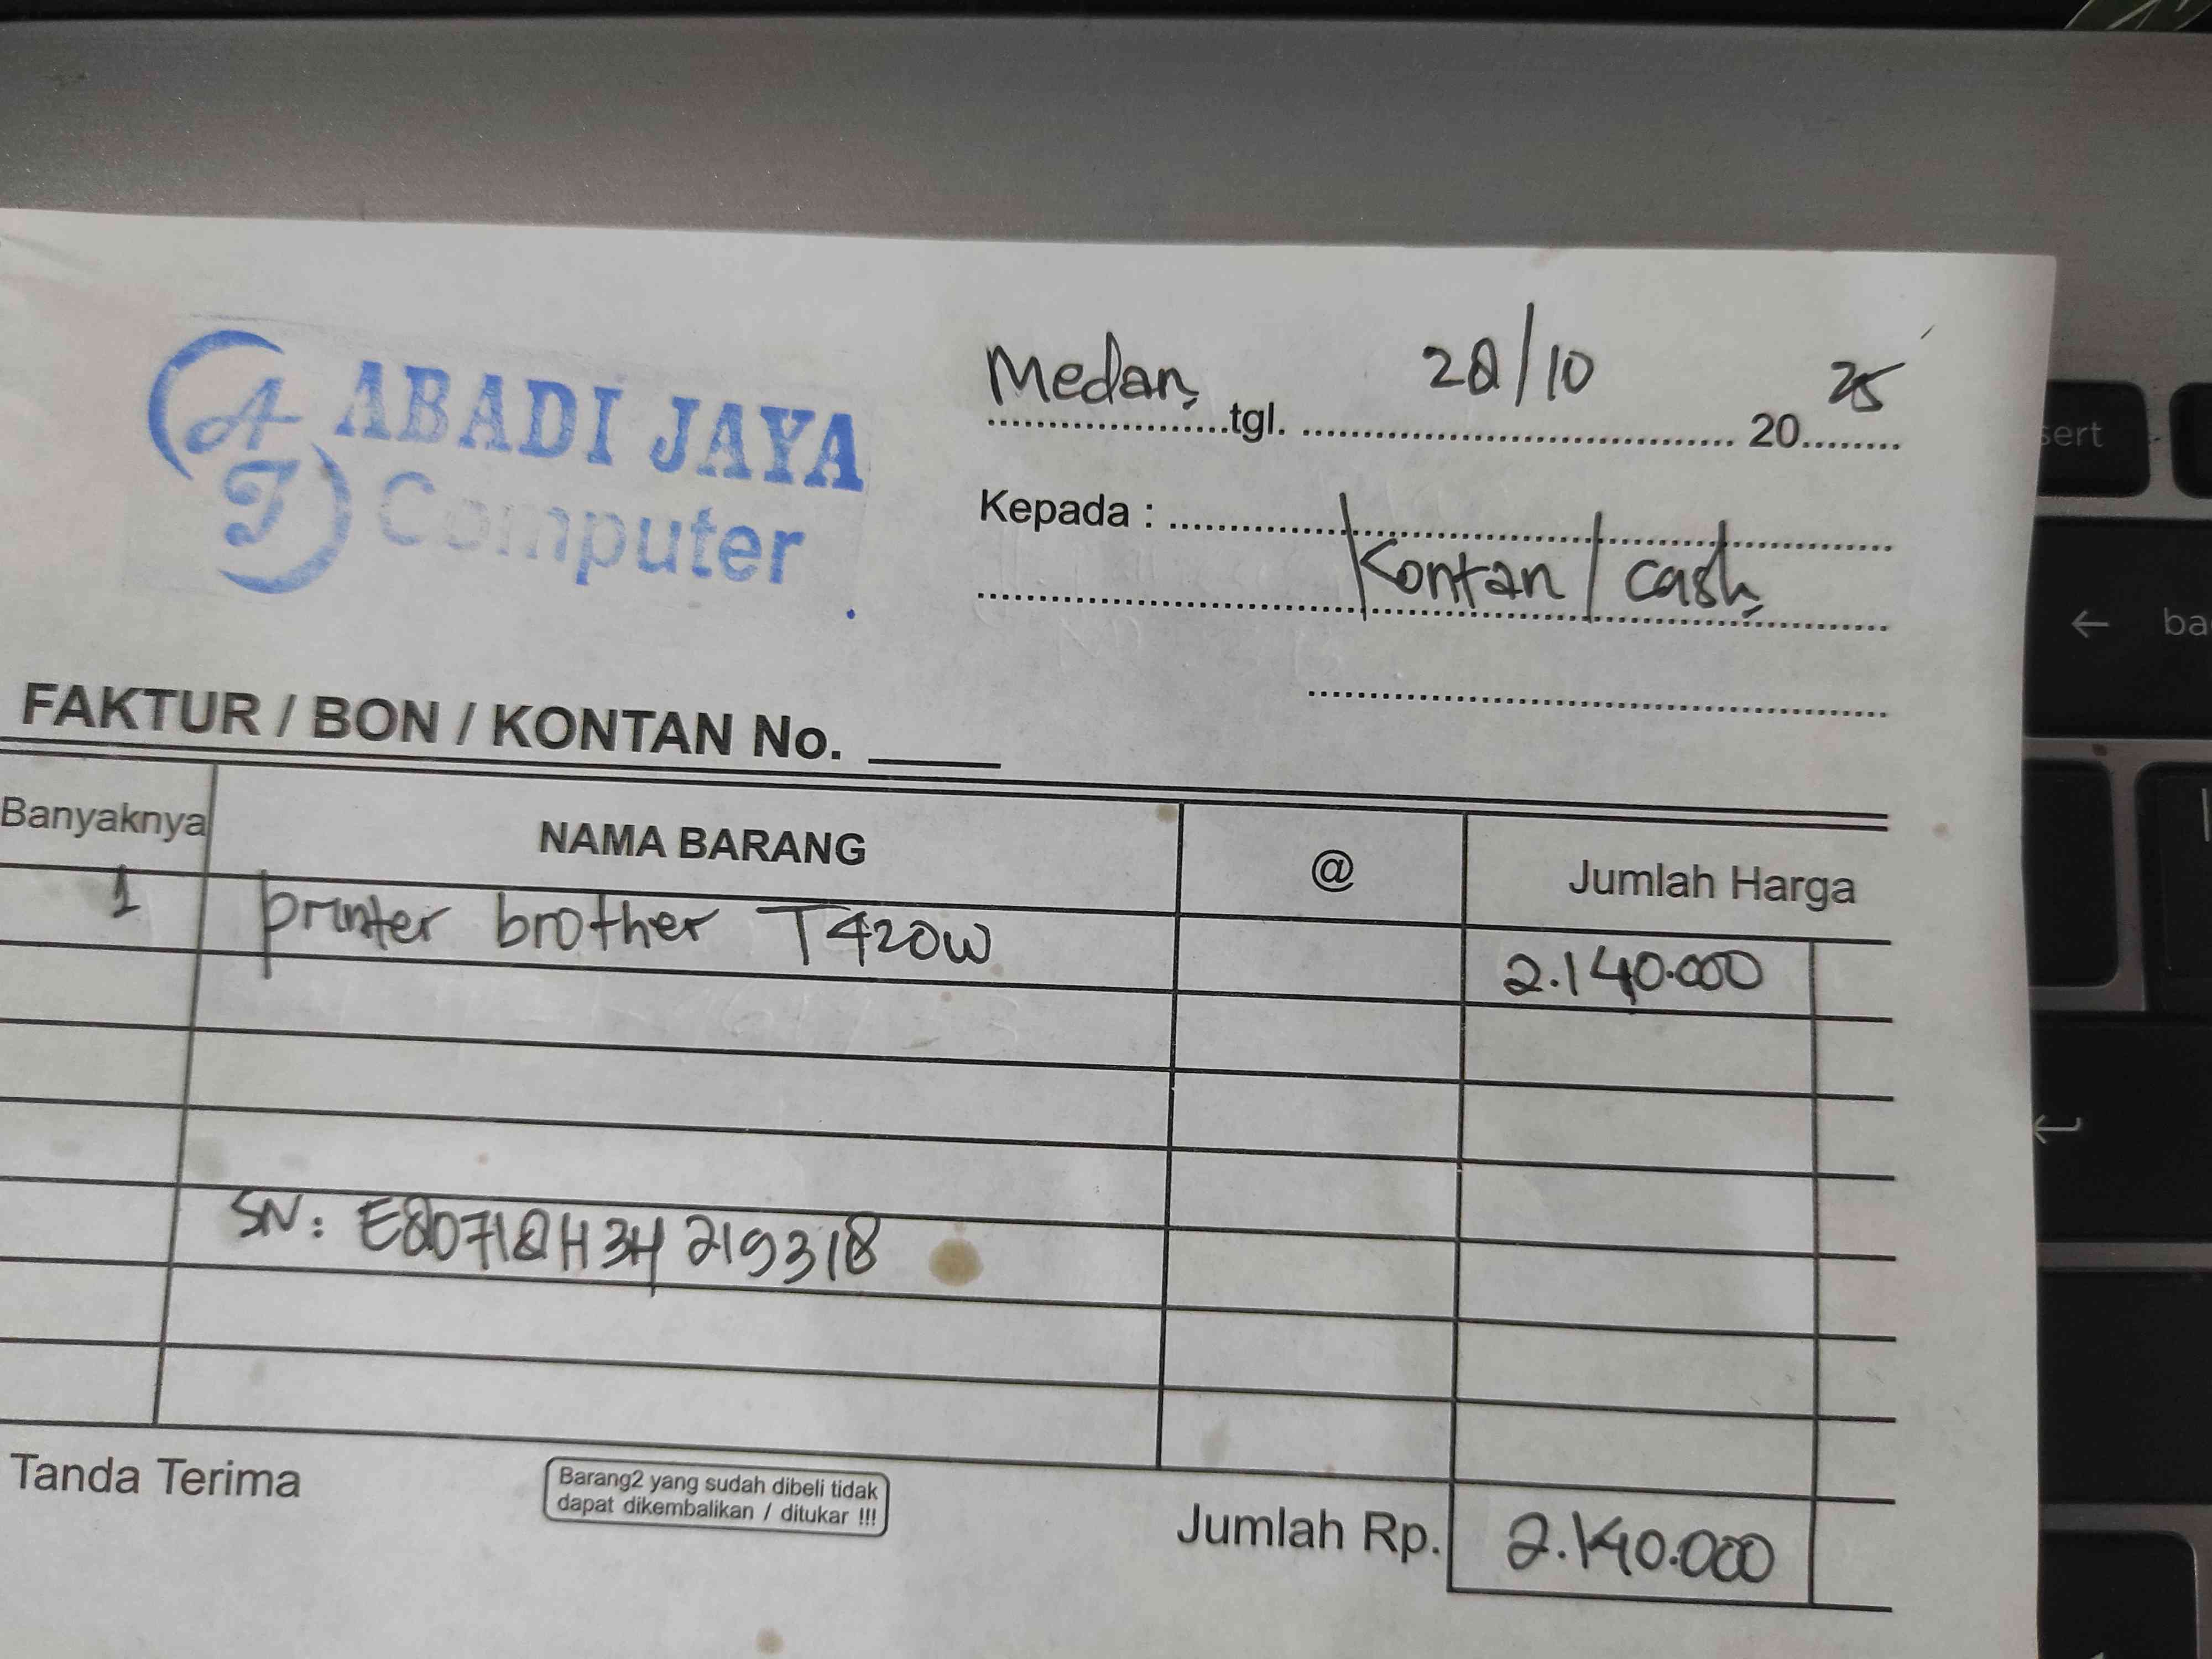 ABADI JAYA
Computer
AJ
Medan, tgl. 28/10 2025
Kepada : Kontan / cash,
FAKTUR / BON / KONTAN No.
Banyaknya NAMA BARANG @ Jumlah Harga
1 printer brother T420W 2.140.000
SN: E80718H3H219318
Tanda Terima
Barang2 yang sudah dibeli tidak
dapat dikembalikan / ditukar !!!
Jumlah Rp. 2.140.000
sert
← ba